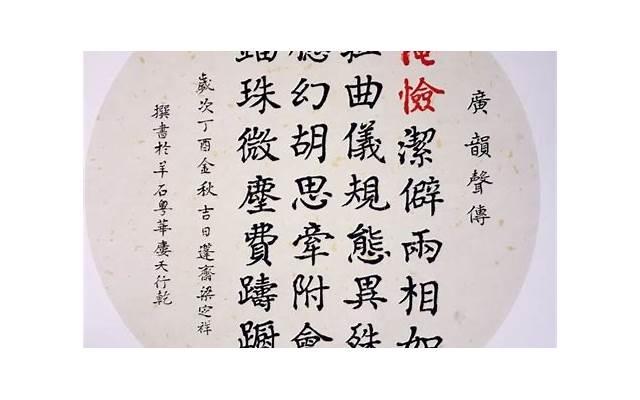 廣韻聲傳
憸潔僻雨相如
曲儀規態異殊
幻胡思牽附會
珠微塵費躊躕
歲次丁酉金秋吉日蓬齋梁定祥
撰書於羊石粵華廔天行乾